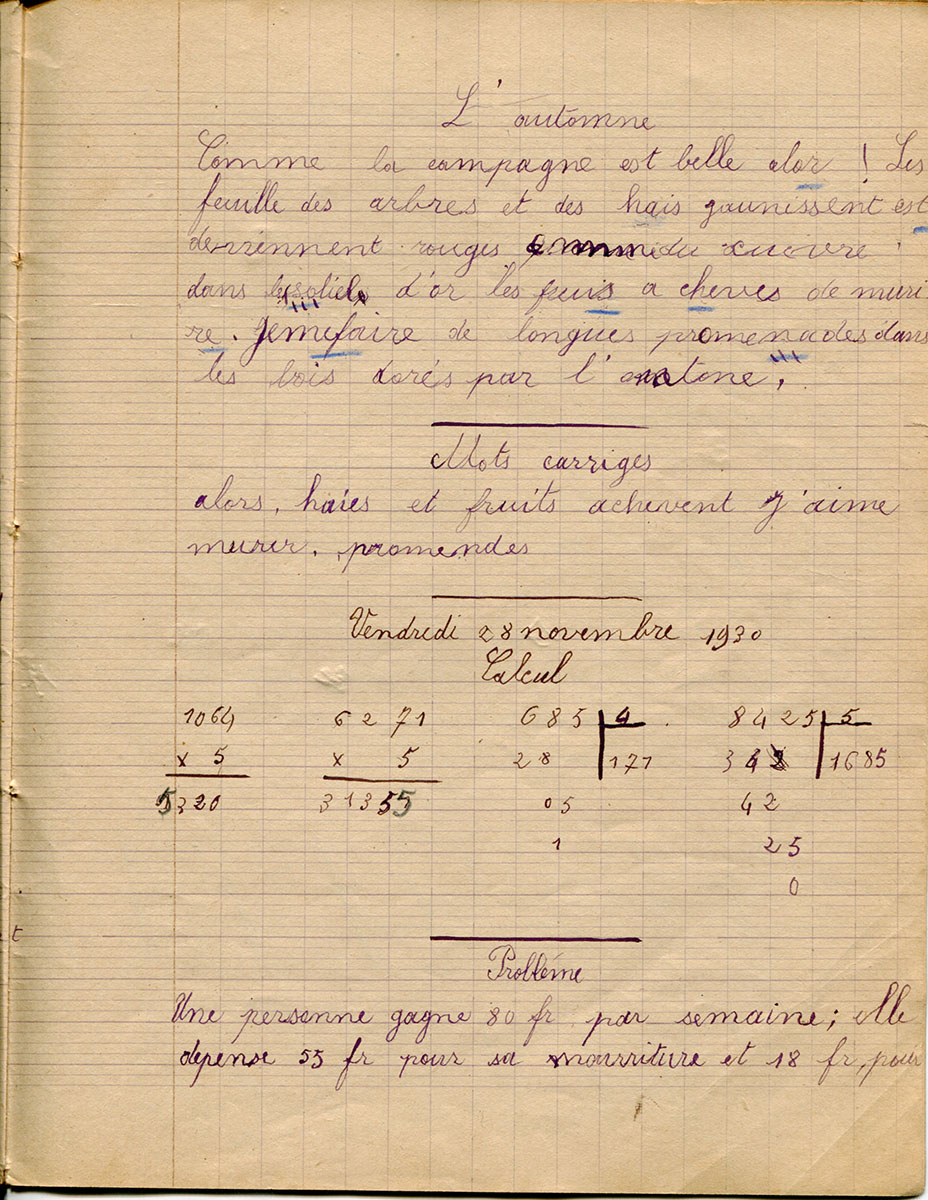 L'automne
Comme la campagne est belle alor ! Les
feuille des arbres et des hais gaunissent est
deviennent rouges comme du cuovre
dans d'or les fuis a cheves de muri
re. Jemefaire de longues promenades dans
les bois dorés par l'
Mots carriges
alors, haies et fruits achevent J'aime
murir, promendes
Vendredi 28 novembre 1930
Calcul
1064 6271 685 4 8425 5
x 5 x 5 28 171 342 1685
5320 31355 05 42
1 25
0
t
Problème
Une personne gagne 80 fr par semaine; elle
depense 55 fr pour sa nourriture et 18 fr, pour